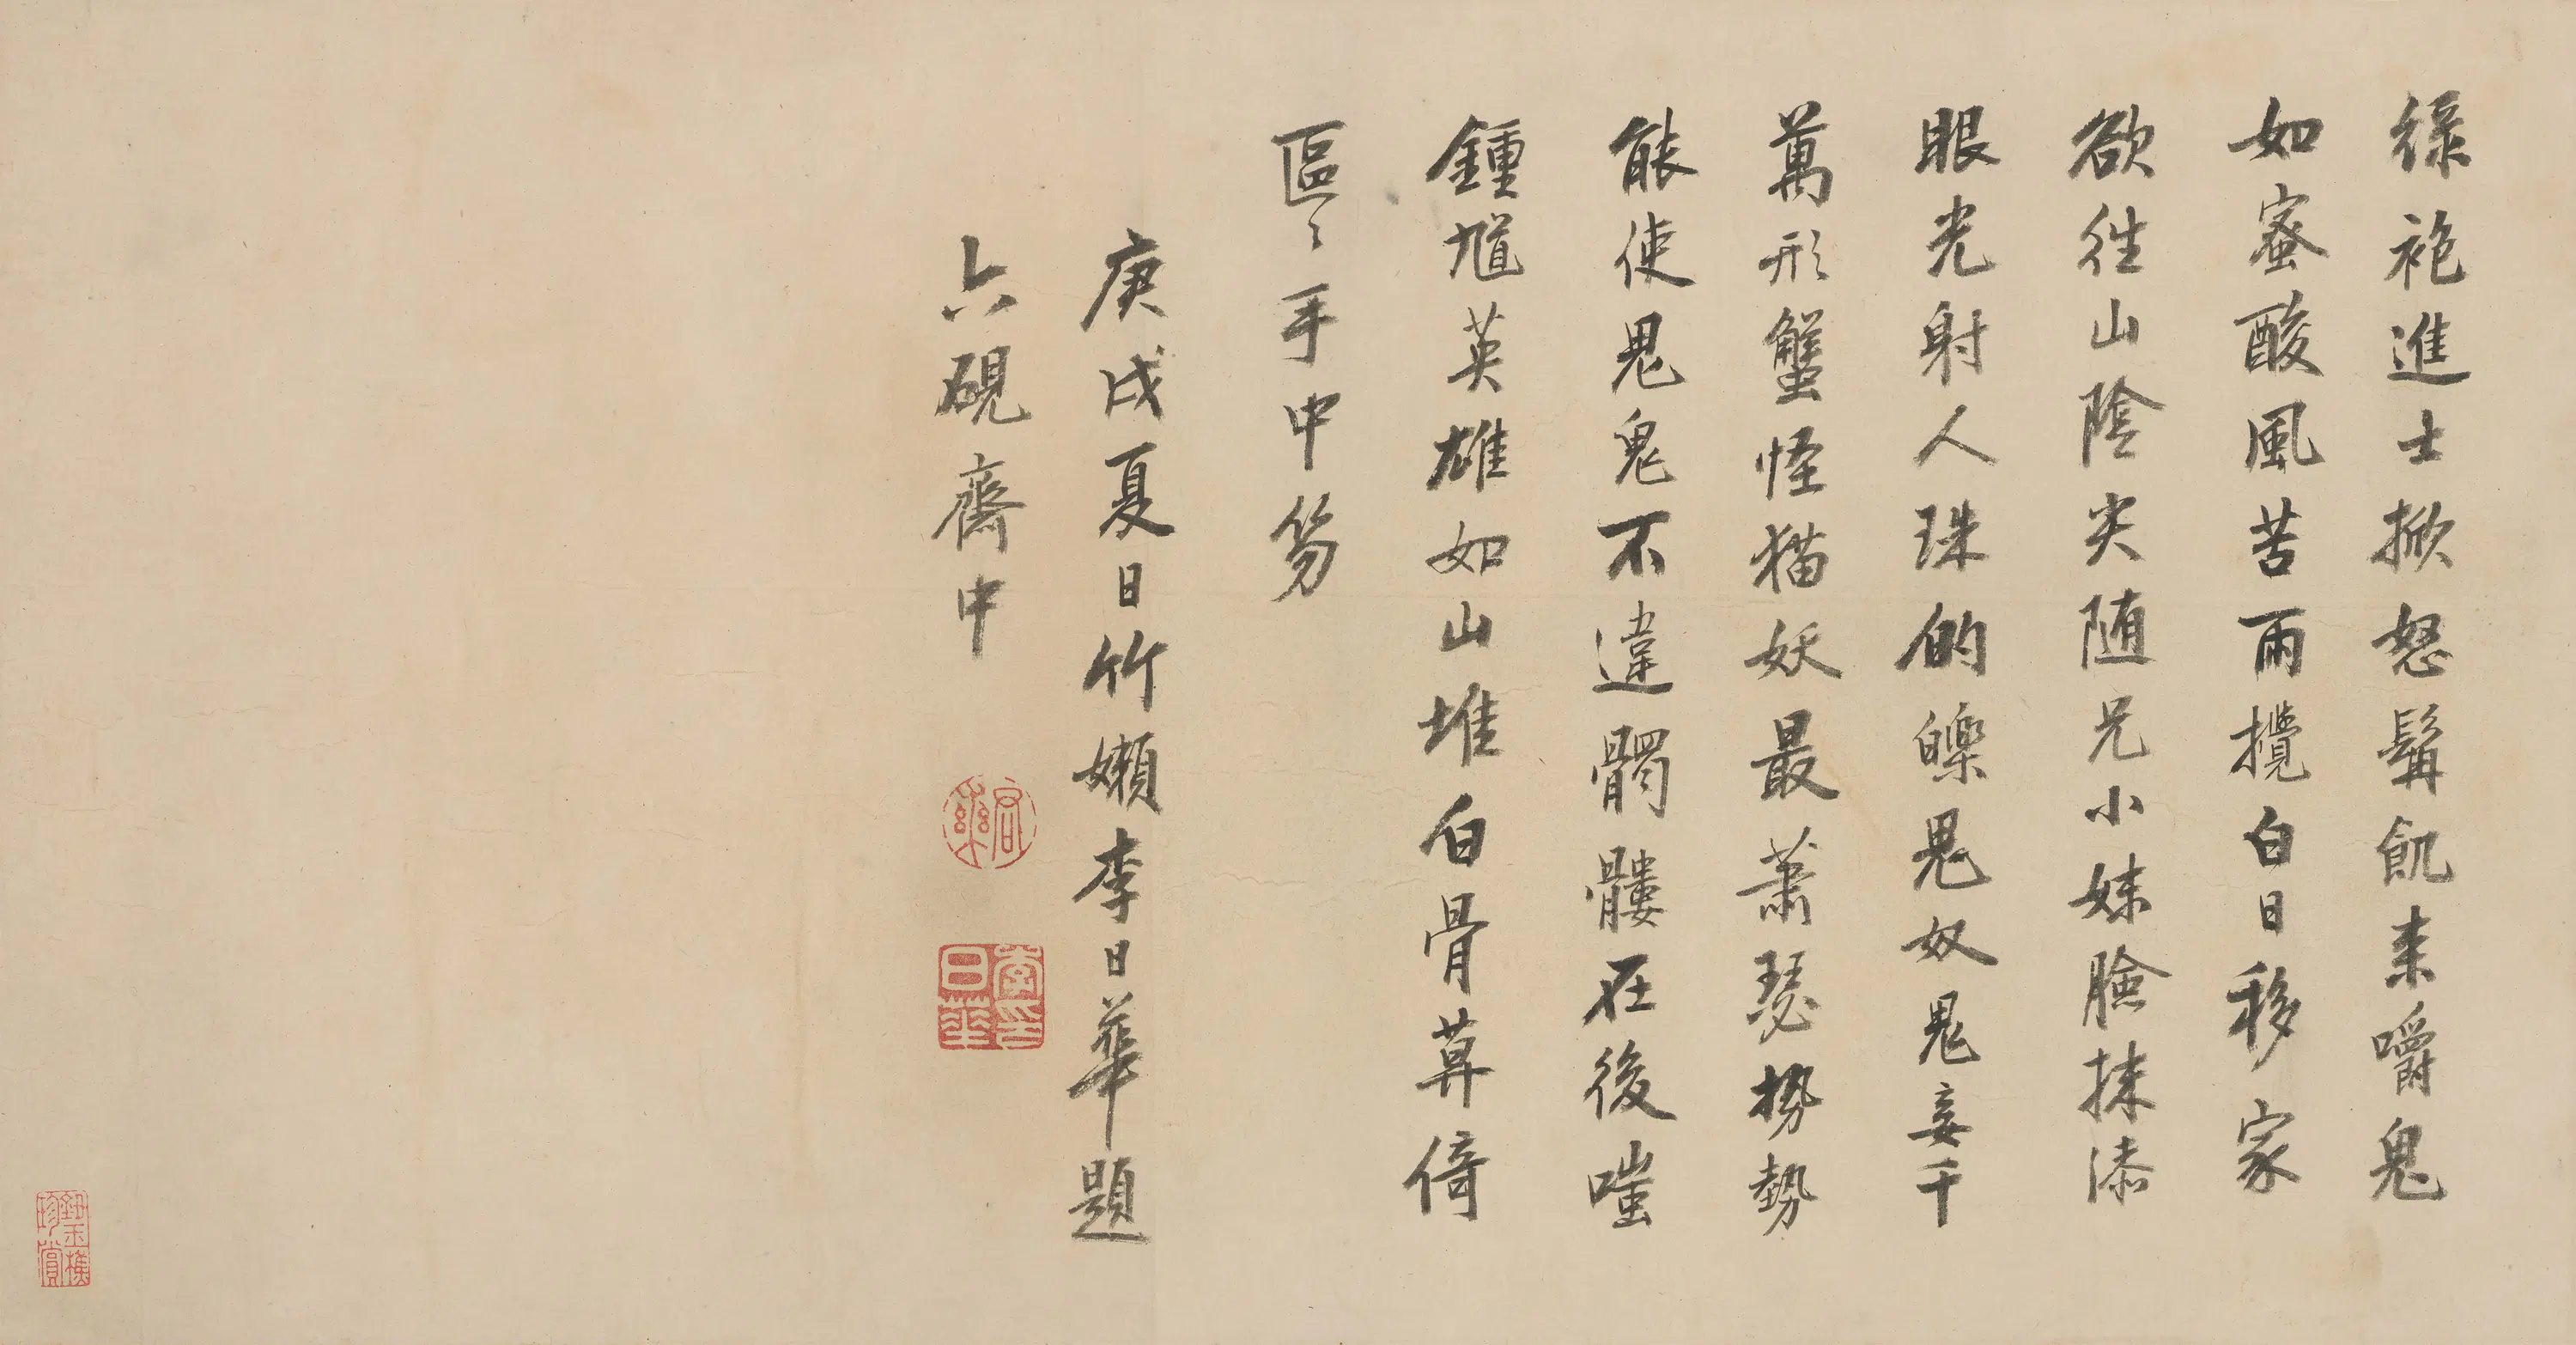 綠袍進士掀怒髯飢來嚼鬼
如蜜酸風苦雨攪白日移家
欲往山陰尖随兄小妹臉抹漆
眼光射人珠的皪鬼奴鬼妾千
萬形蟹怪猫妖最蕭瑟勢勢
能使鬼鬼不違髑髏在後嗤
鍾馗英雄如山堆白骨莫倚
區〻手中笏
庚戌夏日竹嬾李日華題
六硯齋中
君實
李日華印
珍賞